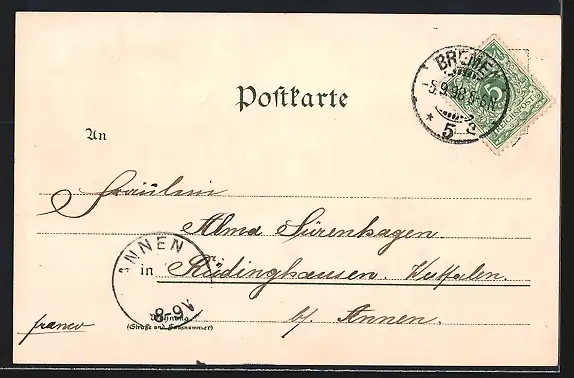 Postkarte
BREMEN
-5.9.98.5-6N
* 5 a
5
REICHSPOST
An
Fräulein
Alma Sürenhagen.
ANNEN
8-9V
in Rüdinghausen. Westfalen.
franco
Wohnung
(Straße und Hausnummer)
b/ Annen.